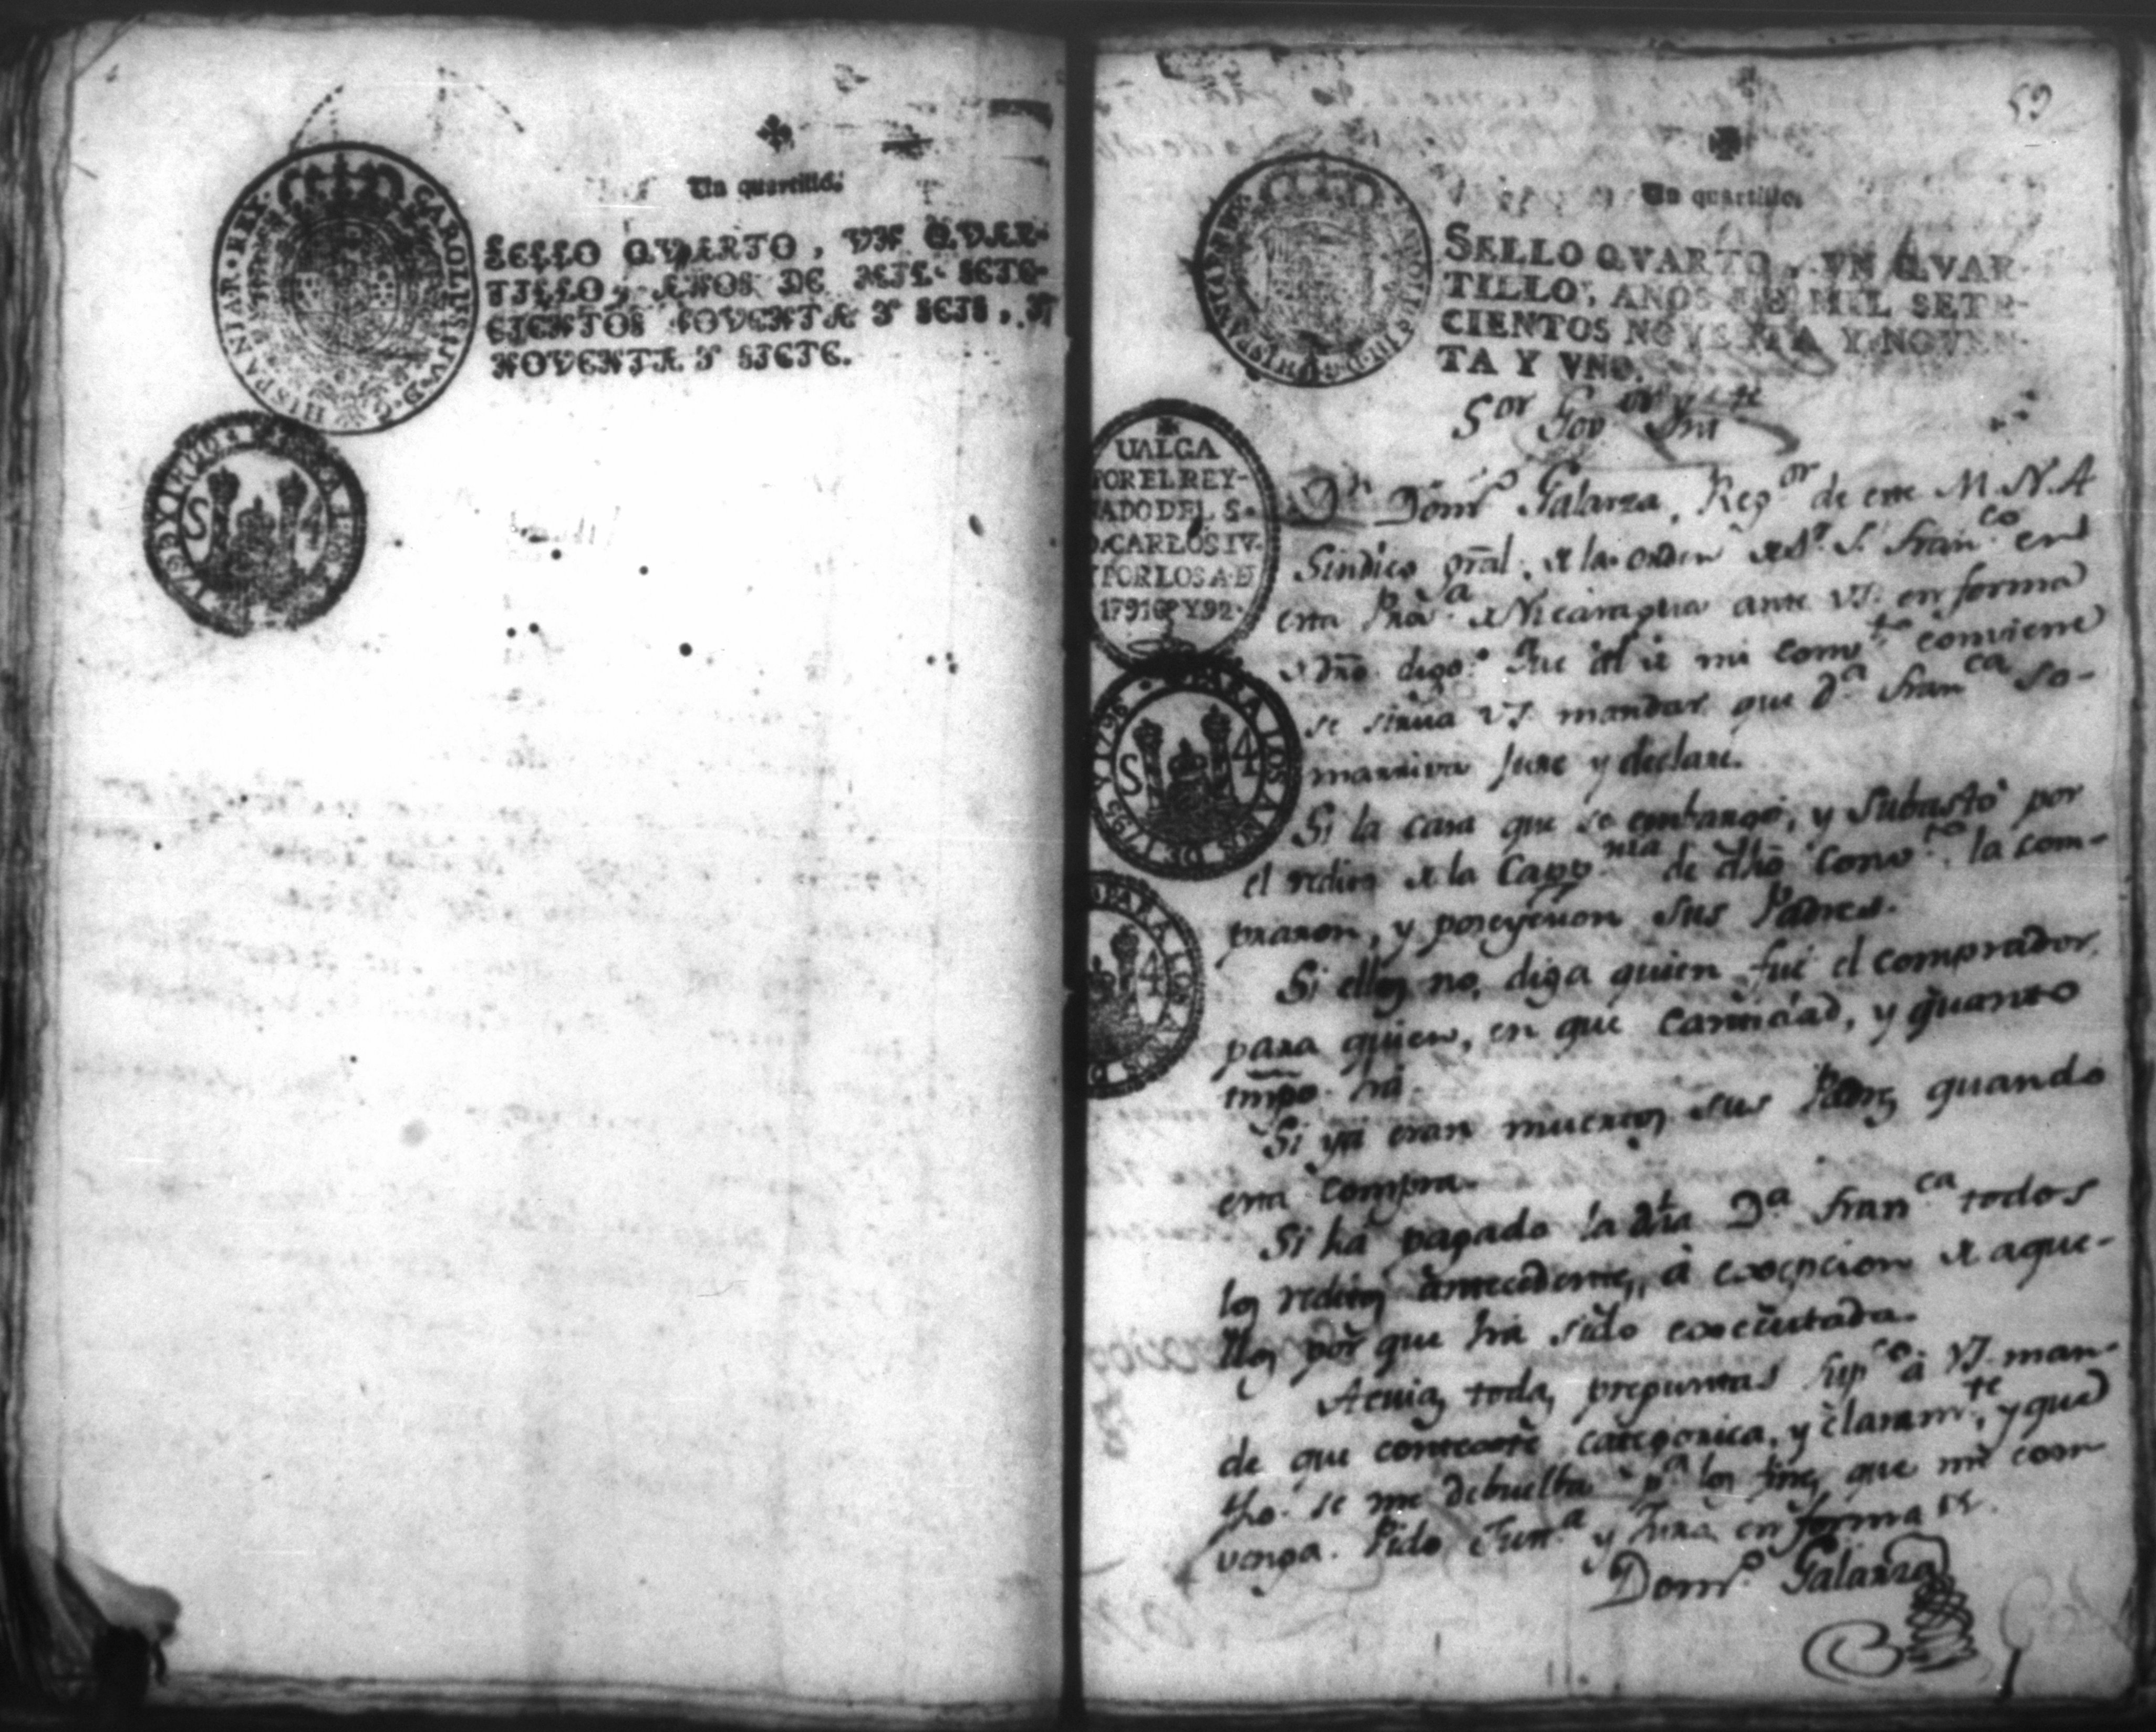 Un quartillo.
SELLO QVARTO, VN QVAR-
TILLO, AÑOS DE MIL SETE-
CIENTOS NOVENTA Y SEIS, Y
NOVENTA Y SIETE.
CAROL·IV·D·G·HISPANIAR·REX·
S 4
59
Un quartillo.
SELLO QVARTO, VN QVAR-
TILLO, AÑOS DE MIL SETE-
CIENTOS NOVENTA Y NOVEN-
TA Y VNO.
UALGA
POR EL REY-
NADO DEL S.
D. CARLOS IV.
Y POR LOS A. D
1791 Y 92.
PARA LOS AÑOS DE 1795 Y 1796
S 4
PARA LOS AÑOS D
4
Sor Govor
Dn. Domo. Galarza, Regor de este M. N. A
Sindico gral. de la orden de N. P. S. Franco. en
esta Proa. de Nicaragua ante VS. en forma
de dro. digo: Que al de mi convto. conviene
se sirva VS. mandar que Da. Franca. So-
marriva jure y declare.
Si la casa que se embargó, y Subastó por
el redito de la Cappnia de dho Convto. la com-
praron, y poseyeron sus Padres.
Si ellos no, diga quien fué el comprador,
para quien, en que cantidad, y quanto
tmpo. há.
Si ya eran muertos sus Pads quando
esta compra.
Si ha pagado la dha Da. Franca todos
los reditos antecedentes, á excepcion de aque-
llos por que há sido executada.
A cuias todas preguntas Supco. á VS. man-
de que conteste categorica, y claramte, y que
fho. se me debuelba pa. los fines que me con
venga. Pido Justa. y Juro en forma &.
Domo. Galarza